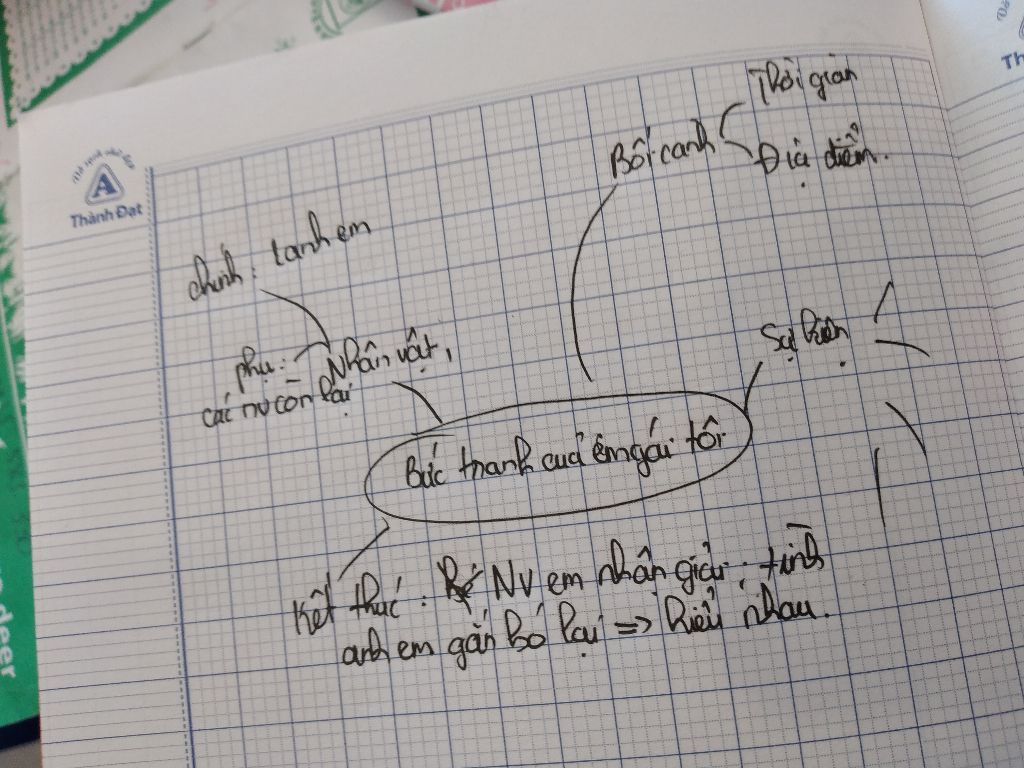 Thời gian
Bối cảnh
Địa điểm.
Thành Đạt
chính: 2 anh em
Sự kiện
phụ: Nhân vật
các nv còn lại
Bức tranh của em gái tôi
Kết thúc: NV em nhận giải; tình
anh em gắn bó lại => hiểu nhau.